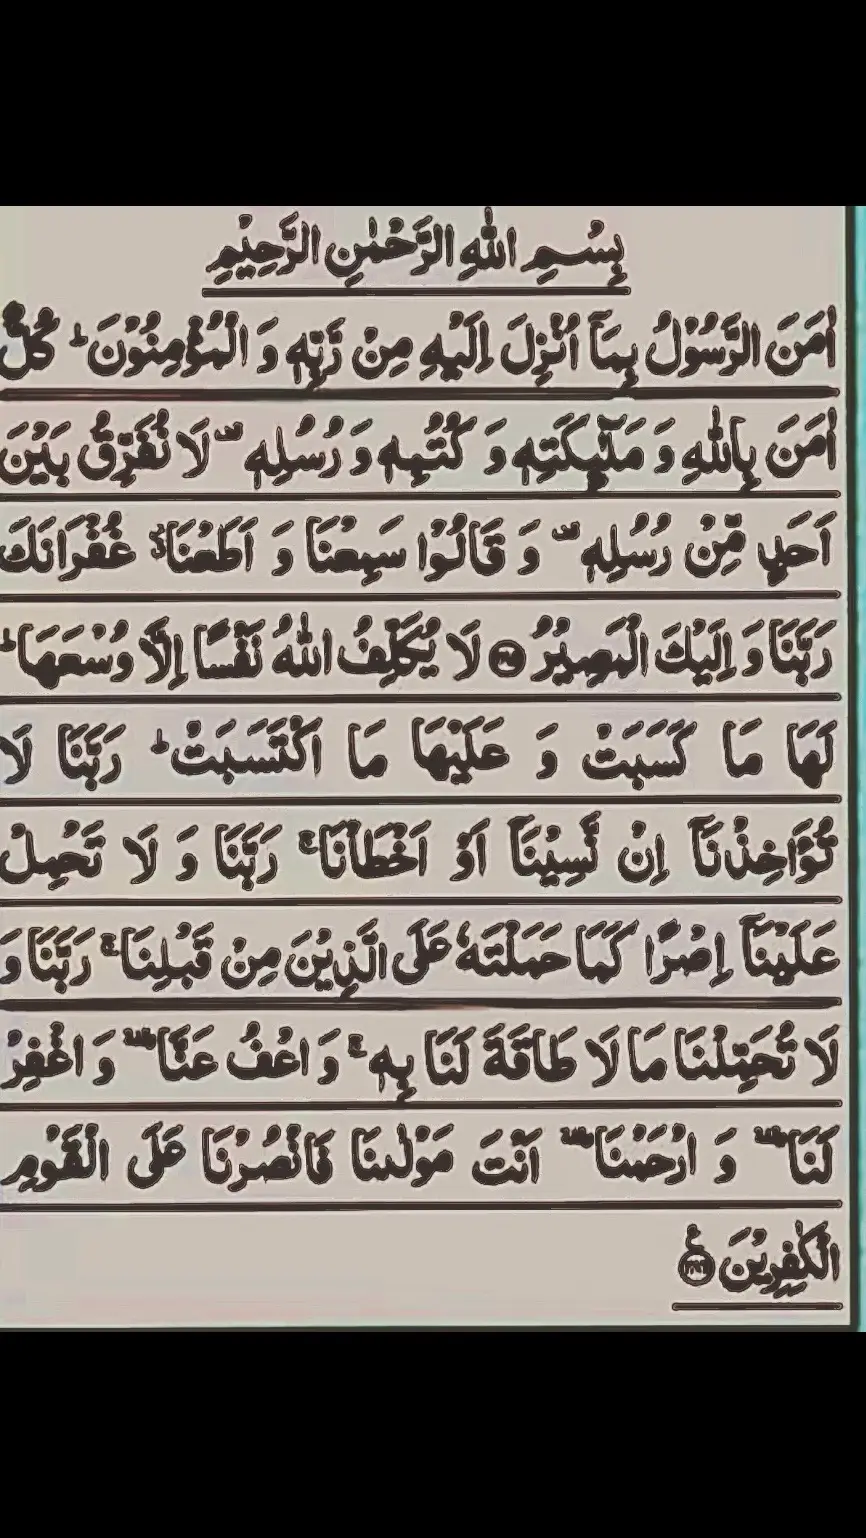 بِسْمِ اللّٰهِ الرَّحْمٰنِ الرَّحِيْمِ
اٰمَنَ الرَّسُوْلُ بِمَاۤ اُنْزِلَ اِلَيْهِ مِنْ رَّبِّهٖ وَ الْمُؤْمِنُوْنَ ؕ كُلٌّ
اٰمَنَ بِاللّٰهِ وَ مَلٰٓئِكَتِهٖ وَ كُتُبِهٖ وَ رُسُلِهٖ ۫ لَا نُفَرِّقُ بَيْنَ
اَحَدٍ مِّنْ رُّسُلِهٖ ۫ وَ قَالُوْا سَمِعْنَا وَ اَطَعْنَا ٘ۗ غُفْرَانَكَ
رَبَّنَا وَ اِلَيْكَ الْمَصِيْرُ ﴿۲۸۵﴾ لَا يُكَلِّفُ اللّٰهُ نَفْسًا اِلَّا وُسْعَهَا ؕ
لَهَا مَا كَسَبَتْ وَ عَلَيْهَا مَا اكْتَسَبَتْ ؕ رَبَّنَا لَا
تُؤَاخِذْنَاۤ اِنْ نَّسِيْنَاۤ اَوْ اَخْطَاْنَا ۚ رَبَّنَا وَ لَا تَحْمِلْ
عَلَيْنَاۤ اِصْرًا كَمَا حَمَلْتَهٗ عَلَى الَّذِيْنَ مِنْ قَبْلِنَا ۚ رَبَّنَا وَ
لَا تُحَمِّلْنَا مَا لَا طَاقَةَ لَنَا بِهٖ ۚ وَ اعْفُ عَنَّا ۥ وَ اغْفِرْ
لَنَا ۥ وَ ارْحَمْنَا ۥ اَنْتَ مَوْلٰىنَا فَانْصُرْنَا عَلَى الْقَوْمِ
الْكٰفِرِيْنَ ﴿۲۸۶﴾ ع